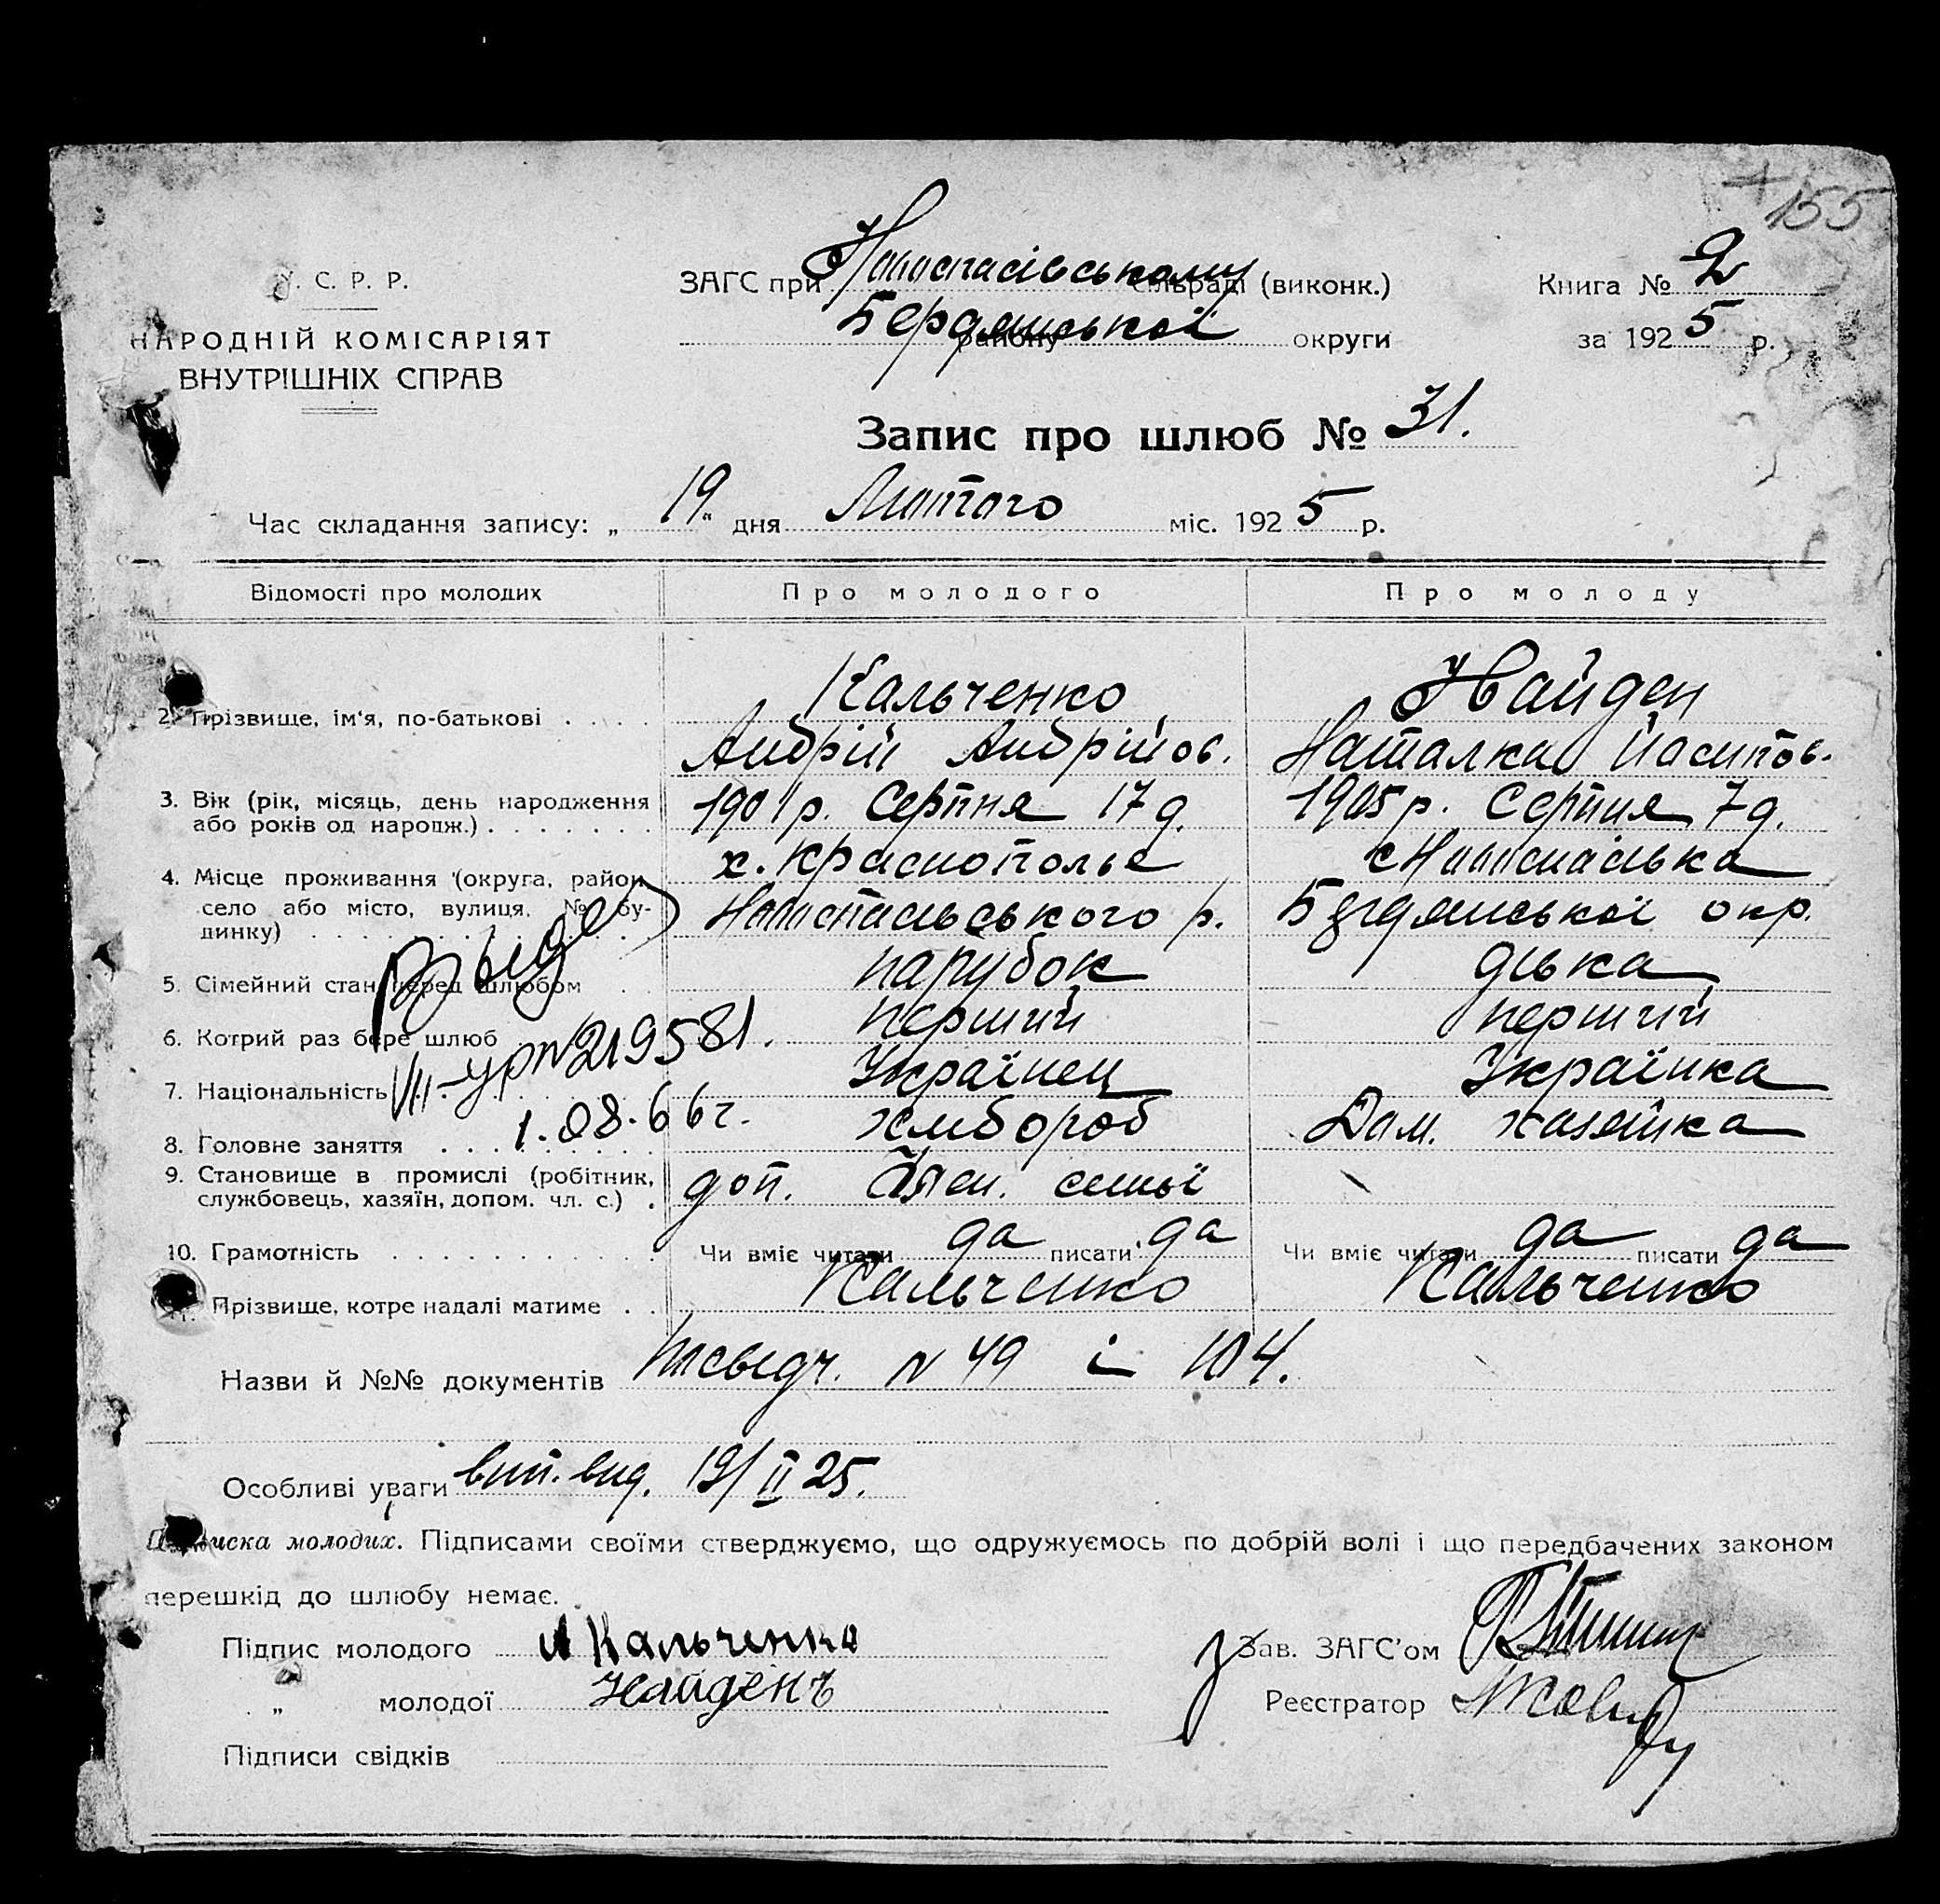 155
У. С. Р. Р.
НАРОДНІЙ КОМІСАРІЯТ
ВНУТРІШНІХ СПРАВ
ЗАГС при Новоспасівському сільраді (виконк.)
району Бердянської округи
Книга № 2
за 1925 р.
Запис про шлюб № 31.
Час складання запису: „ 19 “ дня Лютого міс. 1925 р.
Відомості про молодих
Про молодого
Про молоду
2. Прізвище, ім'я, по-батькові
Кальченко
Андрій Андрійов.
Найден
Наталка Йосипов.
3. Вік (рік, місяць, день народження
або років од народж.)
1901 р. Серпня 17 д.
1905 р. Серпня 7 д.
4. Місце проживання (округа, район,
село або місто, вулиця, № бу-
динку)
х. Краснополье
Новоспасівського р.
с Новоспасівка
Бердянської окр.
5. Сімейний стан перед шлюбом
парубок
дівка
6. Котрий раз бере шлюб
перший
перший
7. Національність
Українец
Українка
VIII-УР №219581.
1.08.66г.
8. Головне заняття
хлібороб
Дом. хазяйка
9. Становище в промислі (робітник,
службовець, хазяїн, допом. чл. с.)
доп. семьї
10. Грамотність
Чи вміє читати да писати да
Чи вміє читати да писати да
11. Прізвище, котре надалі матиме
Кальченко
Кальченко
Назви й №№ документів
N 49 і 104.
Особливі уваги вип. вид. 19/II 25.
Підписка молодих. Підписами своїми стверджуємо, що одружуємось по добрій волі і що передбачених законом
перешкід до шлюбу немає.
Підпис молодого А Кальченко
„ молодої Найденъ
Підписи свідків
Зав. ЗАГС'ом
Реєстратор